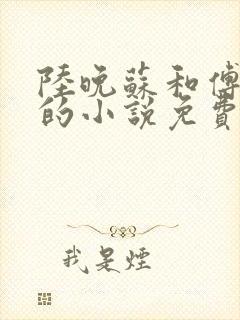 陸晚蘇和傅
的小說免費
我是煙